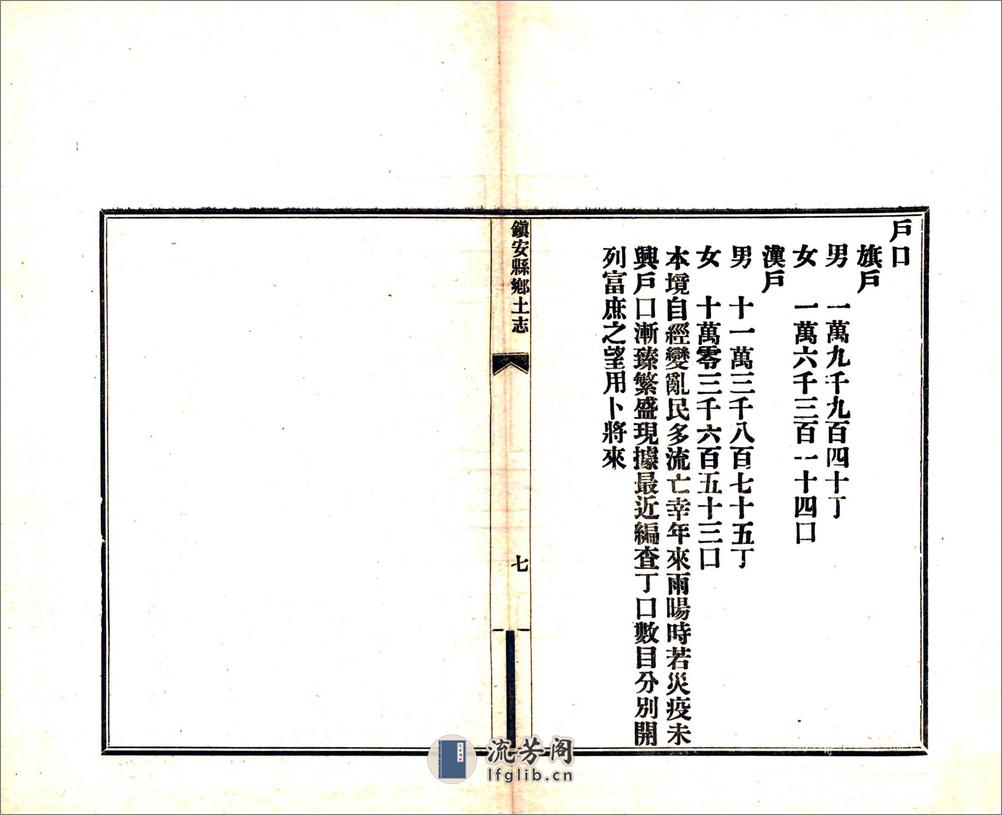 戶口
旗戶
男　一萬九千九百四十丁
女　一萬六千三百一十四口
漢戶
男　十一萬三千八百七十五丁
女　十萬零三千六百五十三口
本境自經變亂民多流亡幸年來雨暘時若災疫未
興戶口漸臻繁盛現據最近編查丁口數目分別開
列富庶之望用卜將來
鎭安縣鄉土志
七
流芳阁
lfglib.cn